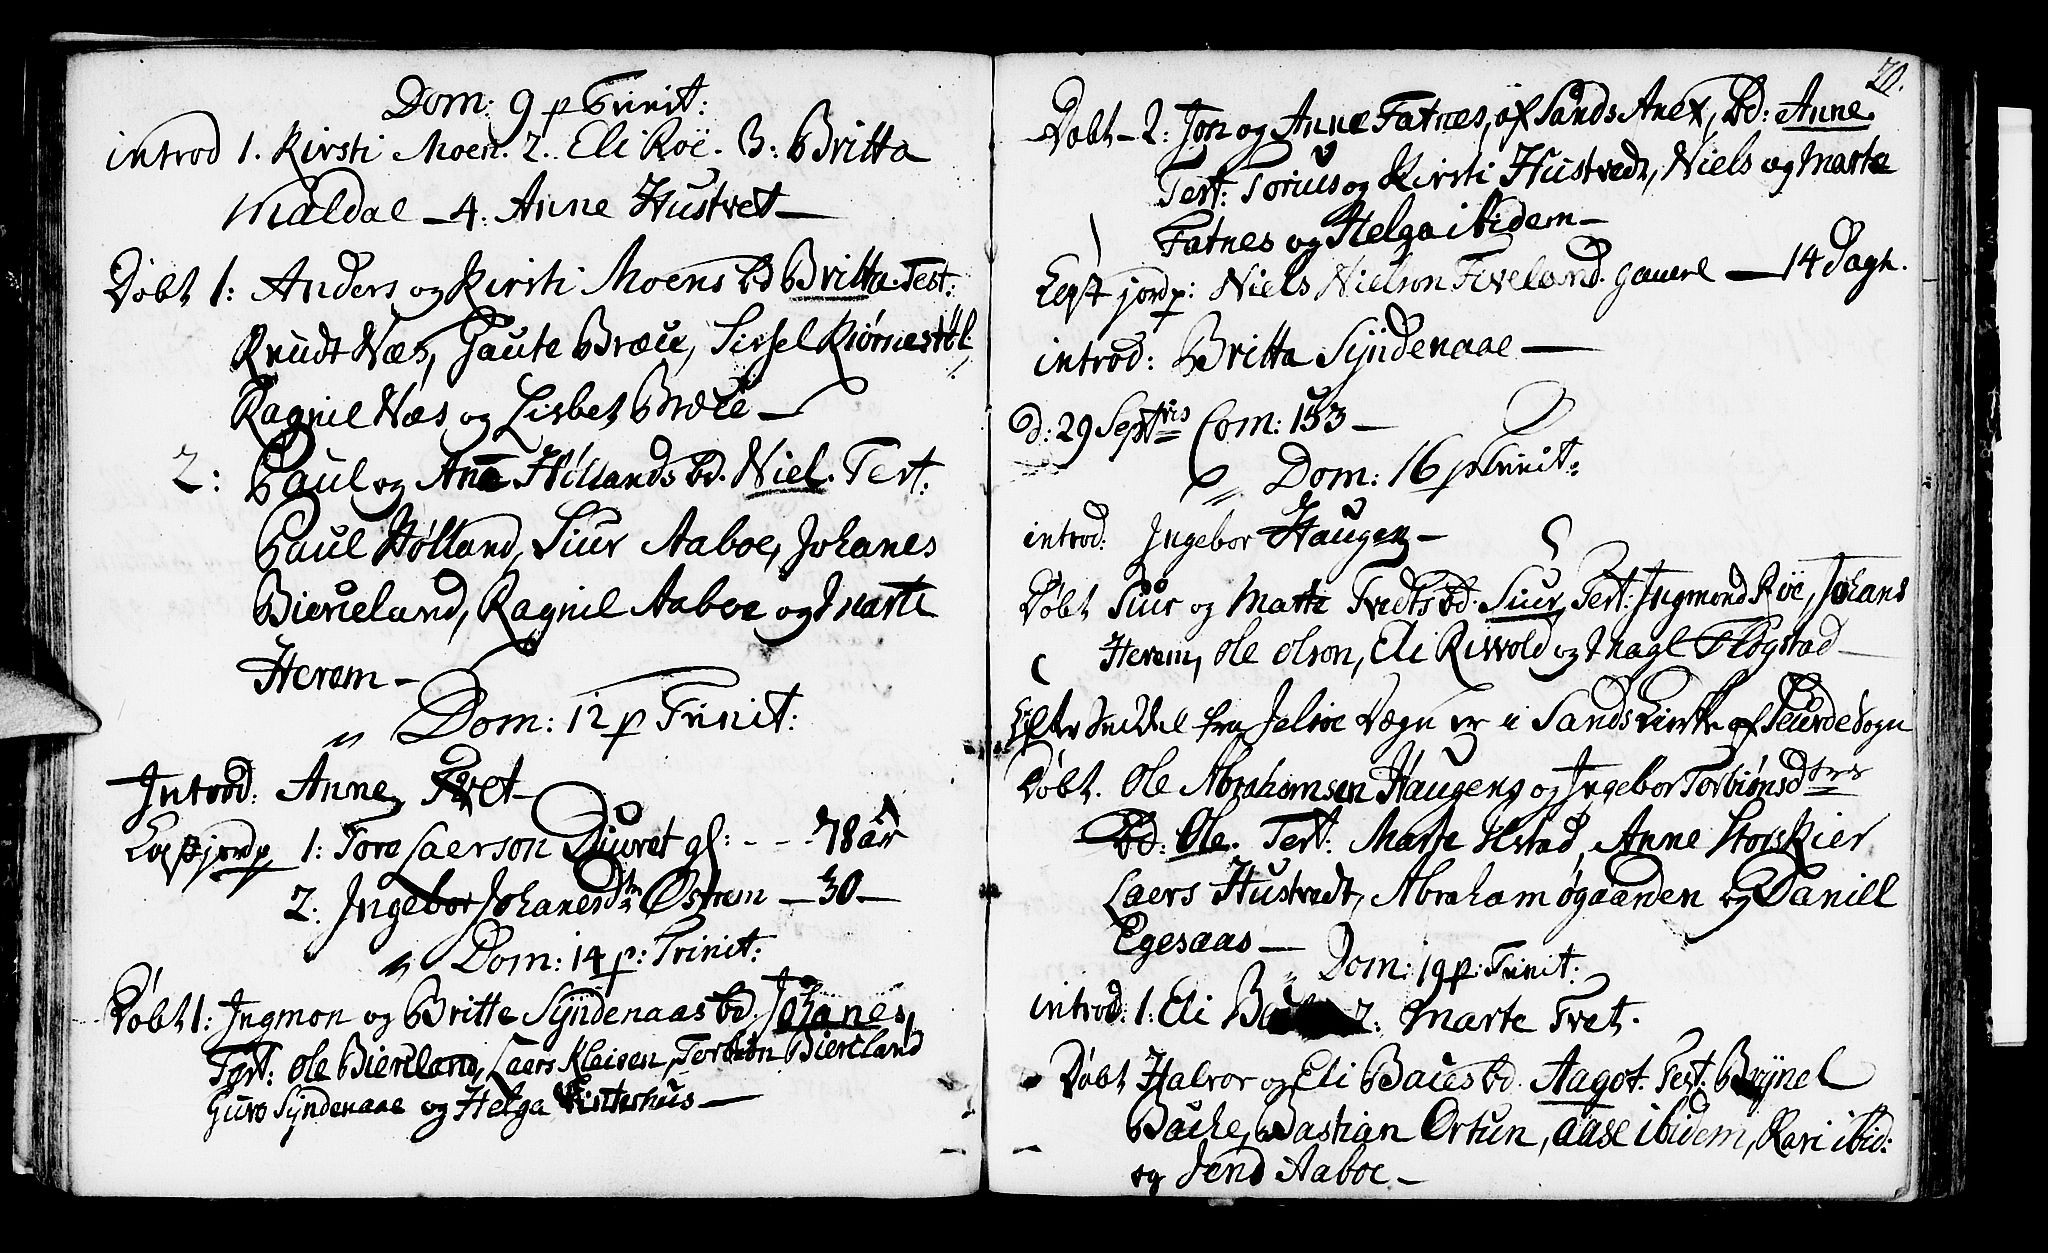 Dom: 9 p Trinit:
introd 1. Kirsti Moen. 2. Eli Roe. 3: Britta
Maldal – 4: Anne Hustvet –
Døbt 1: Anders og Kirsti Moens bd Britta. Test:
Knudt Næs, Gaute Bræue, Sissel Kiørnestøl
Ragnil Næs og Lisbet Bræue –
2: Paul og Ane Høllands bd. Niel. Test:
Paul Hølland, Siur Aaboe, Johanes
Biereland, Ragnil Aaboe og Marte
Herem –
Dom: 12 p Trinit:
Introd: Anne Tvet –
1: Tore Laerson Diuret gl: - - - 78 aar
2: Ingebor Johanesdtr Østrem – 30 –
Dom: 14 p: Trinit:
Døbt 1: Ingmon og Britte Syndenaas bd. Johanes,
Test: Ole Biereland, Laers Kleisen, Torbiøn Biereland
Guro Syndenaae og Helga Vinterhus –
20.
Døbt – 2: Jon og Anne Fatnes, af Sands Anex, bd: Anne
Test: Torius og Kirsti Hustvedt, Niels og Marte
Fatnes og Helga ibidem –
jordp: Niels Nielson Fiveland. – 14 Dage.
introd: Britta Syndenaae –
d: 29 Septris Com: 153 –
Dom: 16 p Trinit:
introd: Ingebor Haugen –
Døbt Siur og Marte Tvedts bd. Siur, Test: Ingmond Roe, Johans
Herem, Ole Olson, Eli Risvold og Magl Fløgstad –
Efter Seddel fra Jelsøe Sogn er i Sands Kirke af Sogn
Døbt. Ole Abrahamsen Haugens og Ingebor Torbiønsdtrs
bd: Ole. Test: Marte Ilstad, Anne Storskier
Laers Hustvedt, Abraham Øgaarden og Daniel
Egesaas –
Dom: 19 p: Trinit:
introd: 1: Eli 2: Marte Tvet.
Døbt Halvor og Eli Baues bd. Aagot. Test: Brynel
Bache, Bastian Ørtun, Aase ibidem, Kari ibid:
og Jend Aaboe –